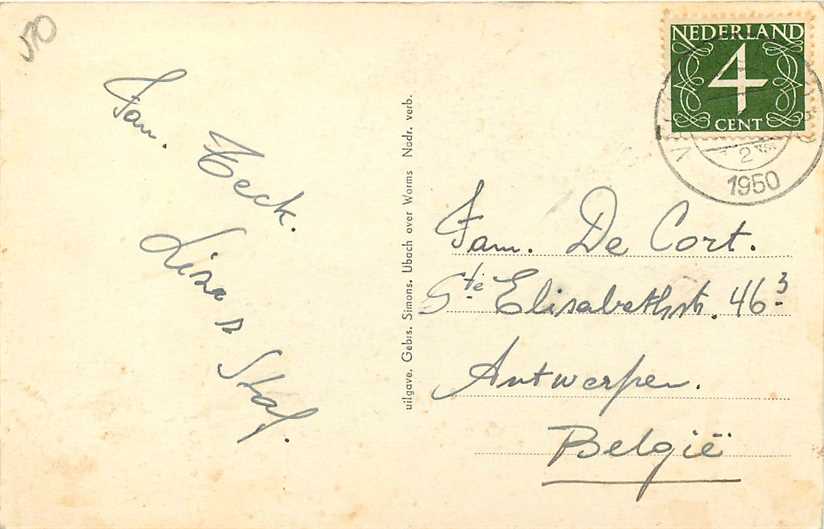 50
Fam. Teck.
Lisa & Staf.
uitgave. Gebrs. Simons. Ubach over Worms Nadr. verb.
NEDERLAND
4
CENT
2
1950
Fam. De Cort.
Ste Elisabethstr. 46 3
Antwerpen.
België